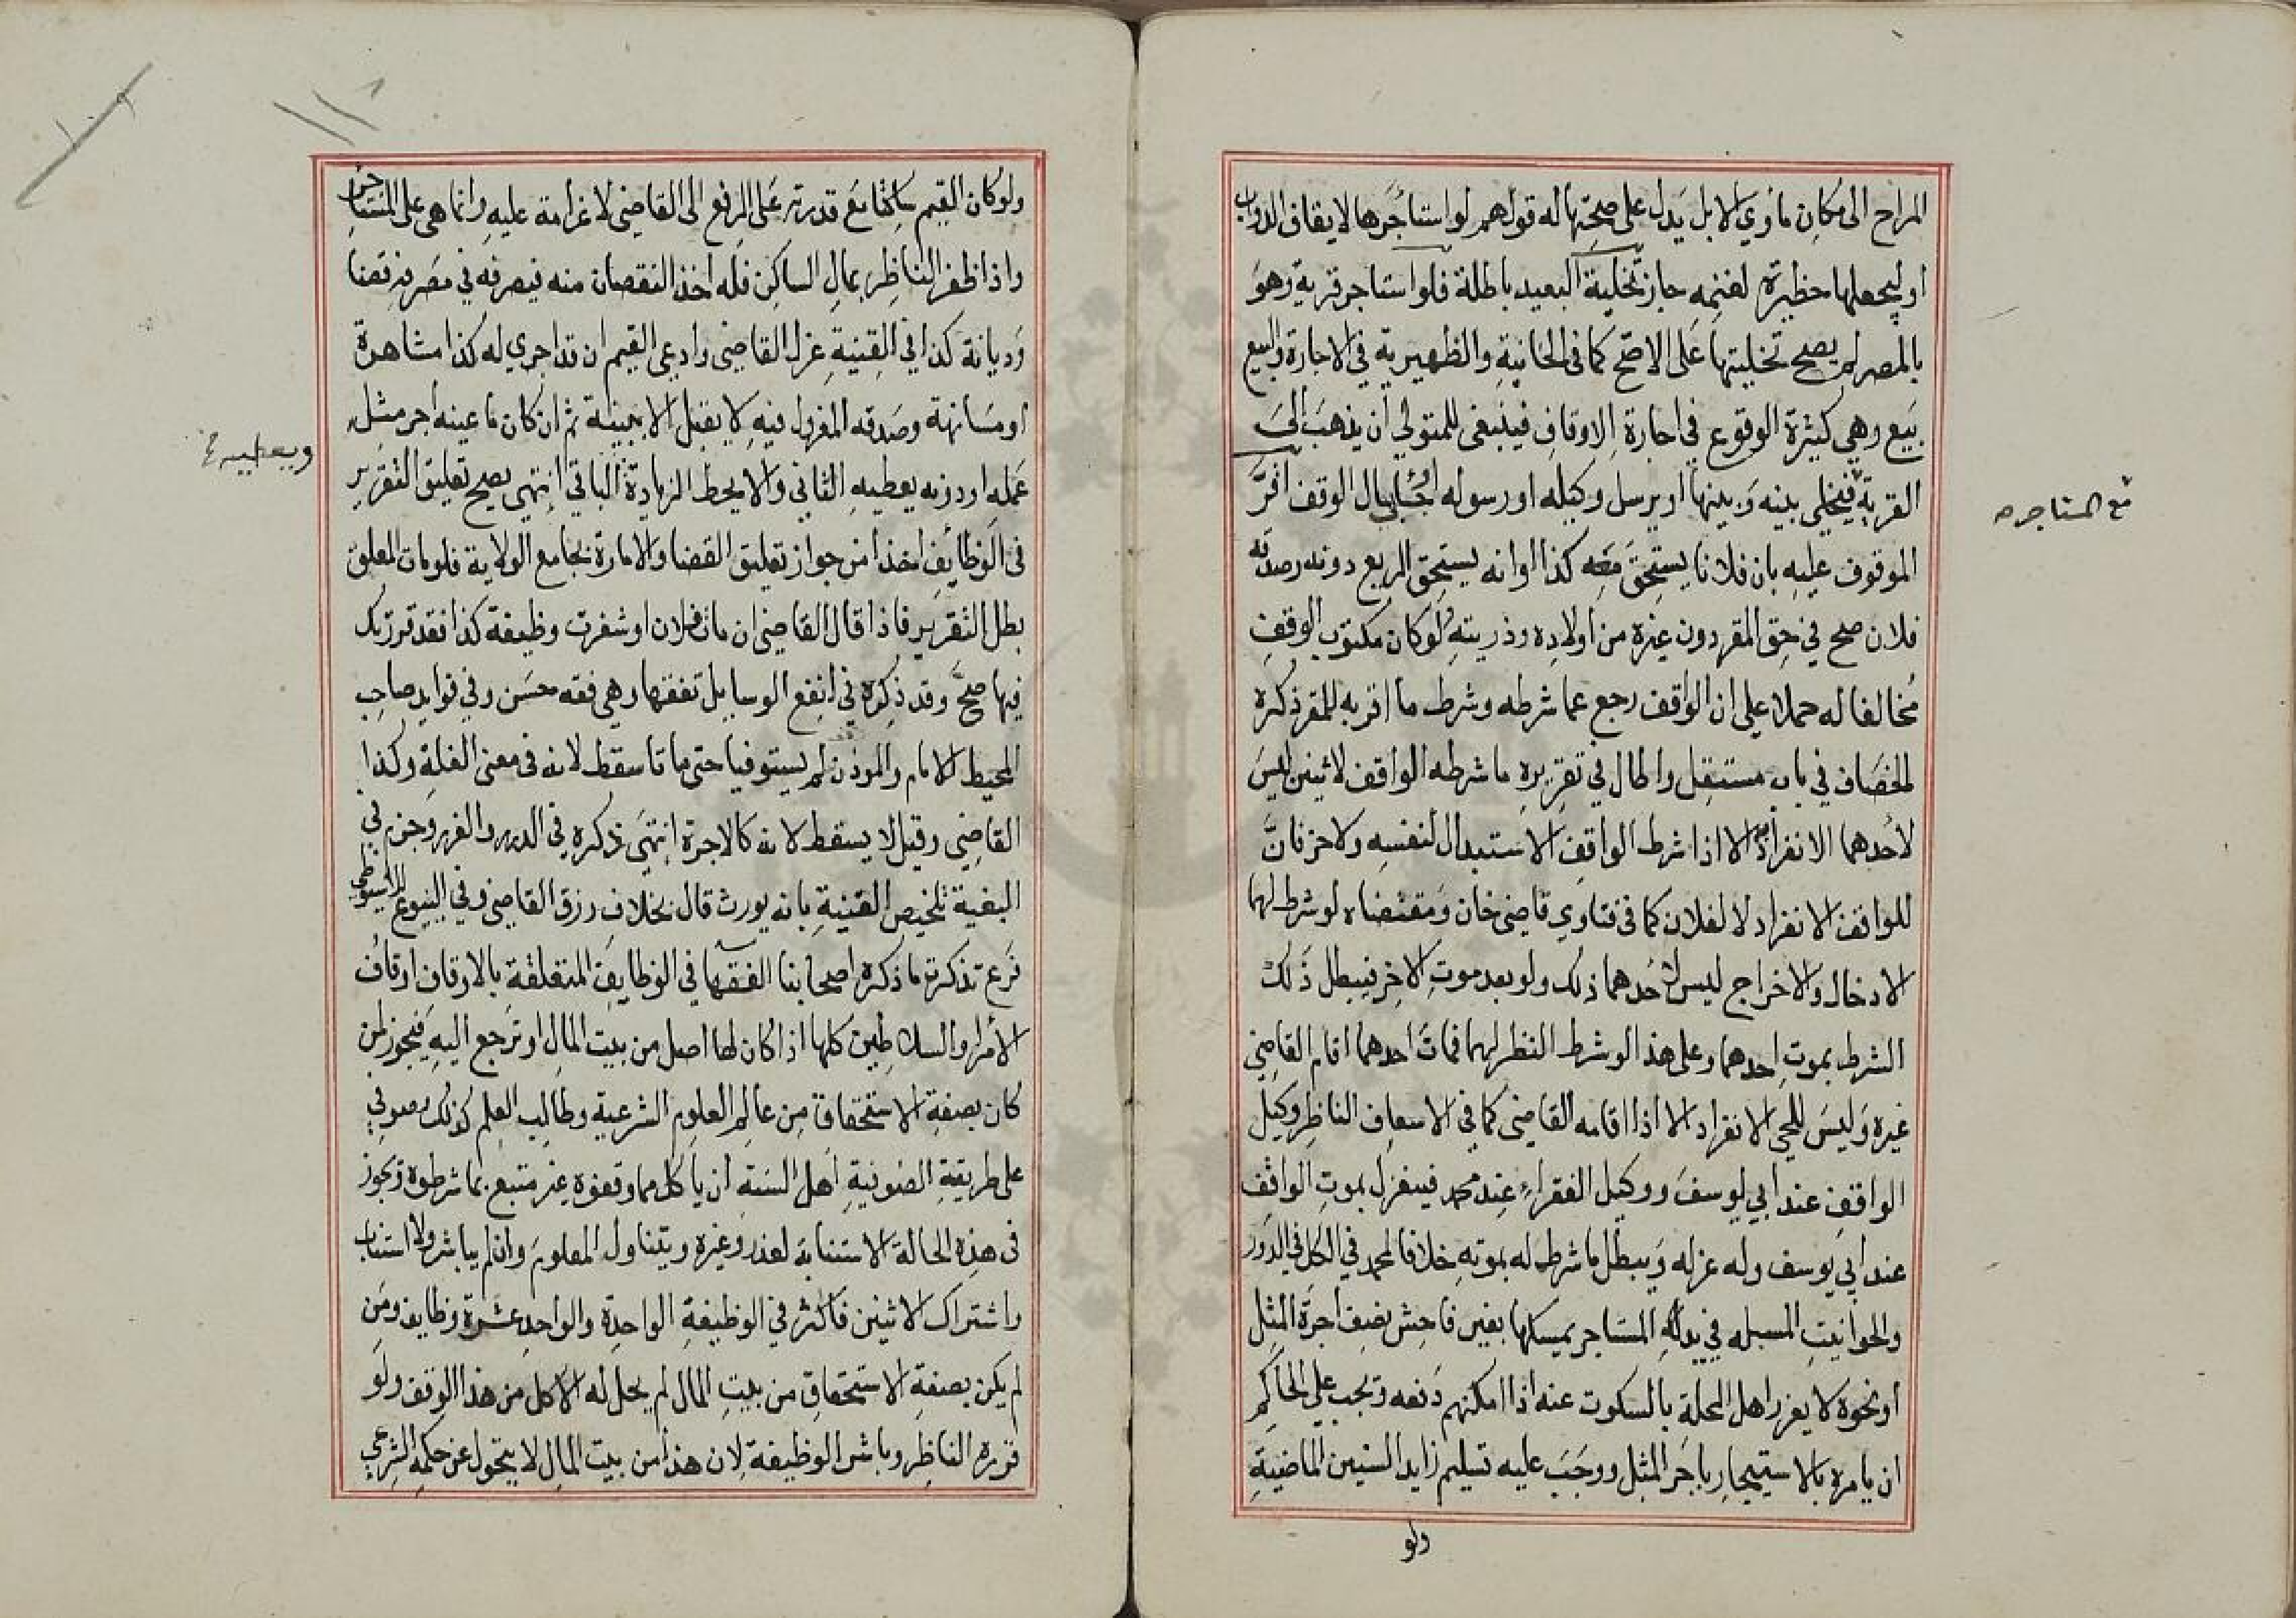 المراح الى مكان ماوي الابل يدل على صحتها له قولهم لو استاجرها لايقاف الدواب
او ليجعلها حظيرة لغنمه جاز تخلية البعيد باطلة فلو استاجر قرية وهو
بالمصر لم يصح تخليتها على الاصح كما في الخانية والظهيرية في الاجارة والبيع
بيع وهي كثيرة الوقوع في اجارة الاوقاف فينبغي للمتولي ان يذهب الى
القرية فيخلي بينه وبينها او يرسل وكيله او رسوله احيا لمال الوقف اقر
مع المستاجر صح
الموقوف عليه بان فلانا يستحق معه كذا او انه يستحق الريع دونه وصدقه
فلان صح في حق المقر دون غيره من اولاده وذريته ولو كان مكتوب الوقف
مخالفا له حملا على ان الواقف رجع عما شرطه وشرط ما اقر به للمقر ذكره
الخصاف في باب مستقل واطال في تقريره ما شرطه الواقف لاثنين ليس
لاحدهما الانفراد الا اذا شرط الواقف الاستبدال لنفسه ولاخر فان
للواقف الانفراد لا لفلان كما في فتاوي قاضي خان ومقتضاه لو شرط لهما
الادخال والاخراج ليس لاحدهما ذلك ولو بعد موت الاخر فيبطل ذلك
الشرط بموت احدهما وعلى هذا لو شرط النظر لهما فمات احدهما اقام القاضي
غيره وليس للحي الانفراد الا اذا اقامه القاضي كما في الاسعاف الناظر وكيل
الواقف عند ابي يوسف ووكيل الفقراء عند محمد فينعزل بموت الواقف
عند ابي يوسف وله عزله ويبطل ما شرطه له بموته خلافا لمحمد في الكل في الدور
والحوانيت المسبله في يد المستاجر يمسكها بغبن فاحش نصف اجرة المثل
او نحوه لا يعزر اهل المحلة بالسكوت عنه اذا امكنهم دفعه ويجب على الحاكم
ان يامره بالاستيجار باجر المثل ووجب عليه تسليم زايد السنين الماضية
ولو
ولو كان القيم ساكتا مع قدرته على الرفع الى القاضي لا غرامة عليه وانما هي على المستاجر
واذا ظفر الناظر بمال الساكن فله اخذ النقصان منه فيصرفه في مصرفه قضا
وديانة كذا في القنية عزل القاضي وادعى القيم ان قد اجري له كذا مشاهرة
او مسانهة وصدقه المعزول فيه لا يقبل الا ببينة ثم ان كان ما عينه اجر مثل
ويعطيه
عمله او دونه يعطيه الثاني والا يحط الزيادة الباقي انتهى يصح تعليق التقرير
في الوظايف اخذا من جواز تعليق القضا والامارة بجامع الولاية فلو مات المعلق
بطل التقرير فاذا قال القاضي ان مات فلان او شغرت وظيفة كذا فقد قررتك
فيها صح وقد ذكره في انفع الوسايل تفقها وهي فقه حسن وفي فوايد صاحب
المحيط الامام والموذن لم يستوفيا حتى ماتا سقط لانه في معنى الصلة وكذا
القاضي وقيل لا يسقط لانه كالاجرة انتهى ذكره في الدرر والغرر وجزم في
البغية تلخيص القنية بانه يورث قال بخلاف رزق القاضي وفي الينبوع للاسيوطي
فرع تذكرته ما ذكره اصحابنا الفقها في الوظايف المتعلقة بالاوقاف اوقاف
الامرا والسلاطين كلها اذا كان لها اصل من بيت المال او ترجع اليه فيجوز لمن
كان بصفة الاستحقاق من عالم العلوم الشرعية وطالب العلم كذلك وصوفي
على طريقة الصوفية اهل السنة ان ياكل مما وقفوه غير متبع بما شرطوه ويجوز
في هذه الحالة الاستنابة لعذر وغيره ويتناول المعلوم وان لم يباشر ولا استناب
واشتراك الاثنين فاكثر في الوظيفة الواحدة والواحد عشرة وظايف ومن
لم يكن بصفة الاستحقاق من بيت المال لم يحل له الاكل من هذا الوقف ولو
قرره الناظر وباشر الوظيفة لان هذا من بيت المال لا يتحول عن حكمه الشرعي